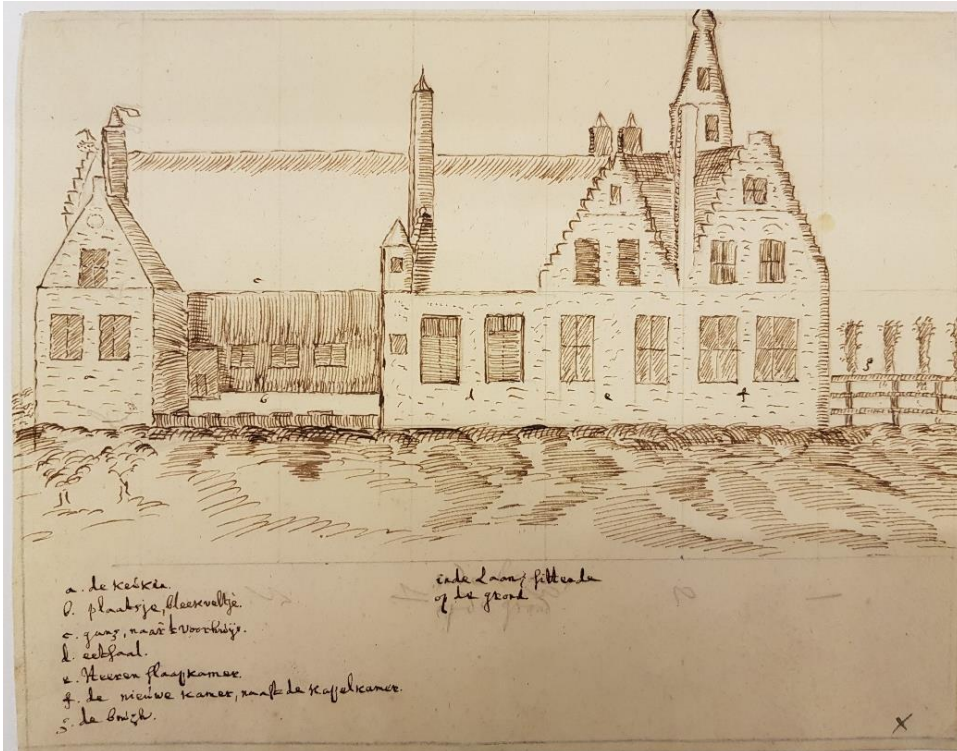 c
b
d
e
f
g
a. de keuken.
b. plaatsje, bleekveltje.
c. gang, naar 't voorhuijs.
d. eetsaal.
e. Heeren slaapkamer.
f. de nieuwe kamer, naast de kapelkamer.
g. de brugh.
in de Laan, sittende
op de grond
x